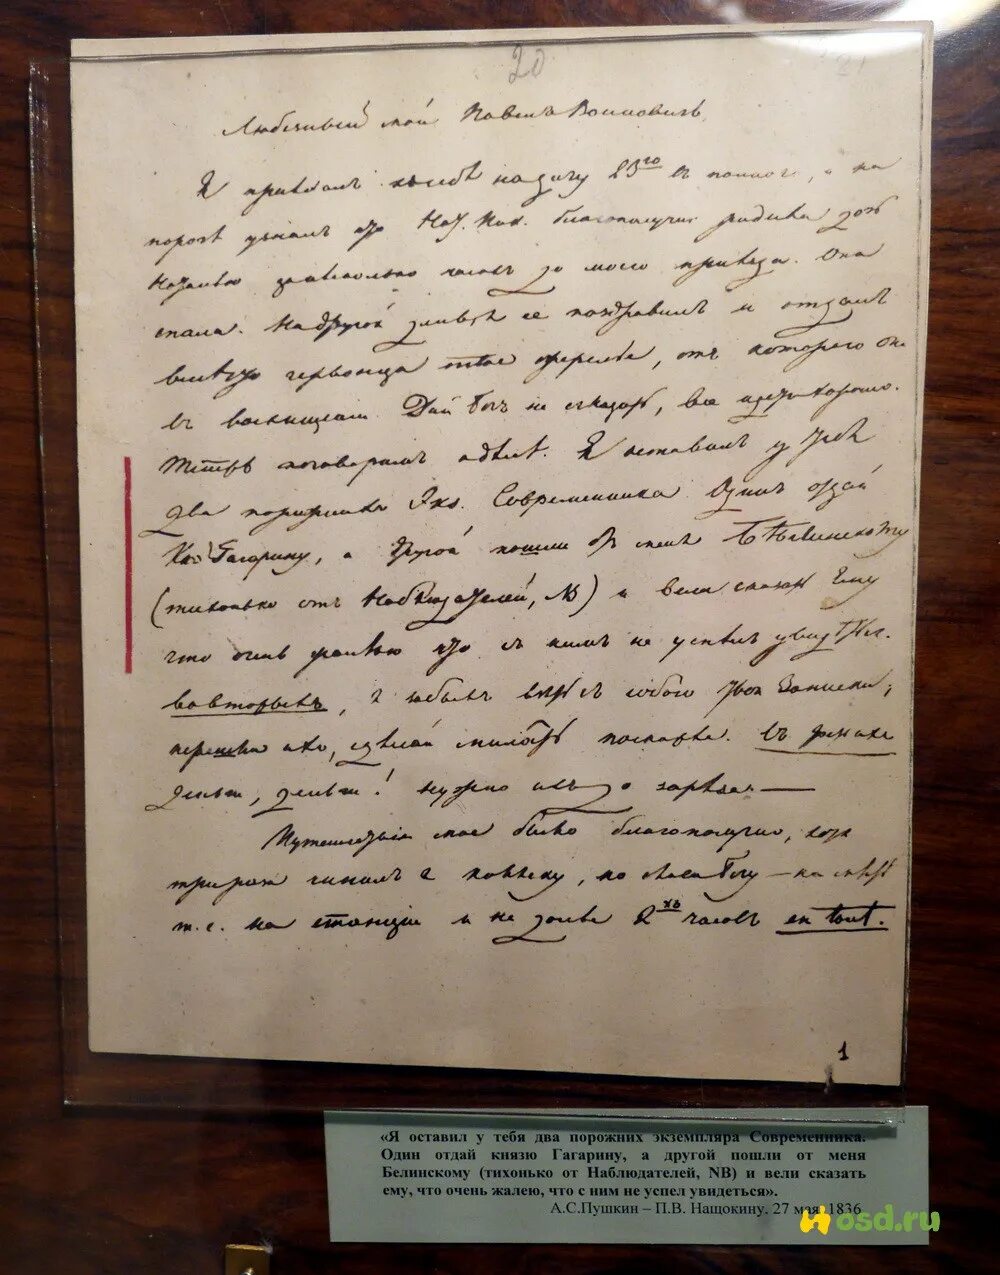 20
21
Любезный мой Павелъ Воиновичь,
Я приѣхалъ къ себѣ на дачу 23го въ полночь, и на
порогѣ узналъ что Нат. Ник. благополучно родила дочь
Наталью за несколько часовъ до моего приѣзда. Она
спала. На другой день я ее поздравилъ и отдалъ
вместо червонца твое ожерелье, отъ котораго она
въ восхищении. Дай Богъ не сглазить, все идетъ хорошо.
Теперь поговоримъ о дѣлѣ. Я оставилъ у тебя
два порожнихъ Экз. Современника. Одинъ отдай
Кн. Гагарину, а другой пошли отъ меня Бѣлинскому
(тихонько отъ Наблюдателей, NB) и вели сказать Ему
что очень жалею что съ нимъ не успелъ увидѣться.
Вовторыхъ, я забылъ взять съ собою твои Записки;
перешли ихъ, сделай милость поскорѣе. Въ третьихъ
деньги, деньги! нужно ихъ до зарѣза —
Путешествие мое было благополучно, хотя
три раза чинилъ я коляску, но слава Богу — на мѣстѣ
т. е. на станции и не долее 2хъ часовъ en tout.
1
«Я оставил у тебя два порожних экземпляра Современника.
Один отдай князю Гагарину, а другой пошли от меня
Белинскому (тихонько от Наблюдателей, NB) и вели сказать
ему, что очень жалею, что с ним не успел увидеться».
А.С.Пушкин – П.В. Нащокину. 27 мая 1836
osd.ru